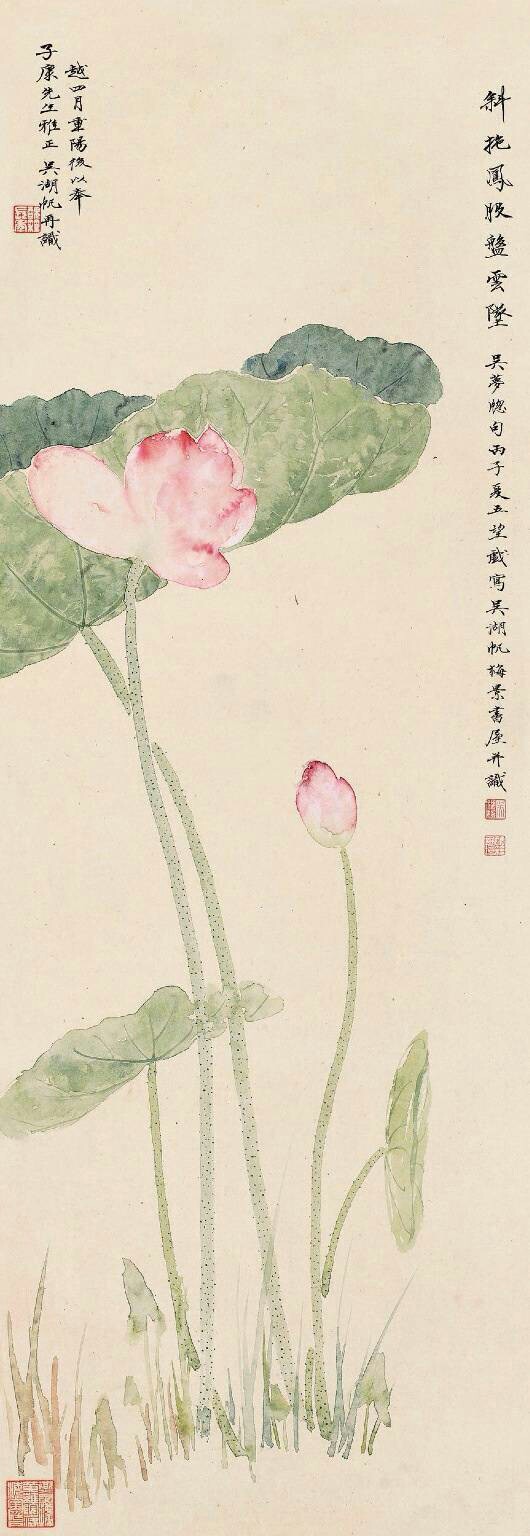 斜拖鳳股盤雲墜 吳夢牕句丙子夏五望戲寫吳湖帆梅景書屋并識
越四月重陽後以奉
子康先生雅正 吳湖帆再識